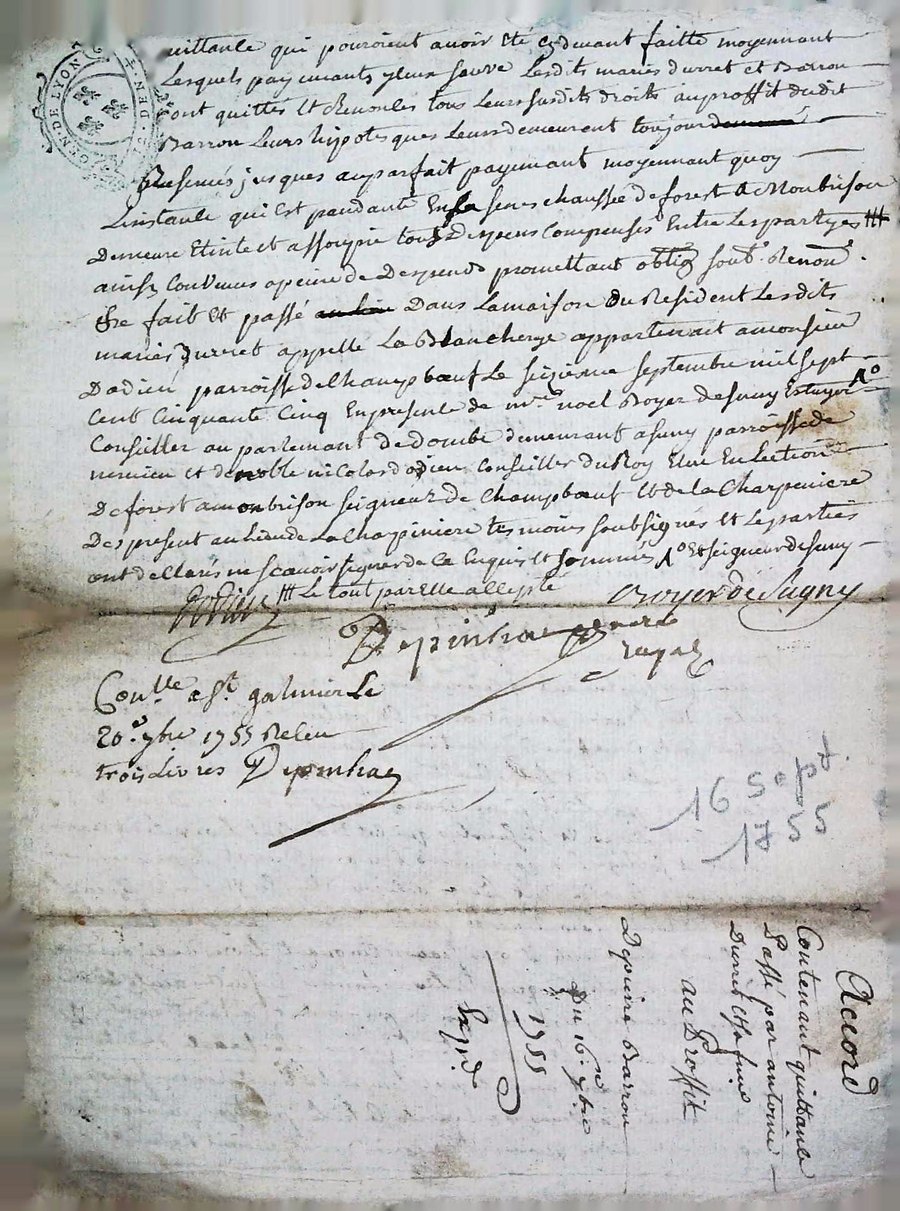 quittance qui pouroient avoir ete cydevant faitte moyennant
Lesquels payemants yceux sauve Lesdits mariés durret et Barrou
ont quittés et Renoncés tous Leurs susdits droits auproffit dudit
Barrou Leurs hipoteques Leurs demeurent toujour
Reservés jusques auparfait payemant moyennant quoy
Linstance qui Est pandante En la senechaussée deforest a Monbrison
demeure Etinte et assoupie tous Despens Compensés Entre Lespartyes
ainsy Convenus apeine de Despends promettant oblig soub. Renon.
fait et passé Dans Lamaison Du Resident Lesdits
mariés Durret appellé La Blancherye appartenait amonsieur
Dodieu parroisse de Champbœuf Le seizieme septembre mil sept
Cent Cinquante Cinq Enpresence de mre noel Royer desuny Escuyer
Conseiller au parlemant de dombe demeurant asuny parroisse de
nervieu et de noble nicolas dodieu Conseiller du Roy Elu En Lection
De forest amonbrison seigneur de Champbœuf et de la Charpeniere
Des present au Lieu de La Chapiniere tesmoins soubsignés et Les parties
ont declarés ne scavoir signer de Ce Enquis et sommés Et seigneur de suny
Dodieu Le tout par Elle accepté Royer de Sugny
Depinhac
Contlle a St galmier Le
20e 7bre 1755 Receu
trois Livres Depinhac
16 Sept.
1755
Accord
Contenant quittance
Passé par antoine
Durret et sa fame
au Proffit
De pierre Barrou
Du 16e 7bre
1755
Expd.
JOEN. DE LYON